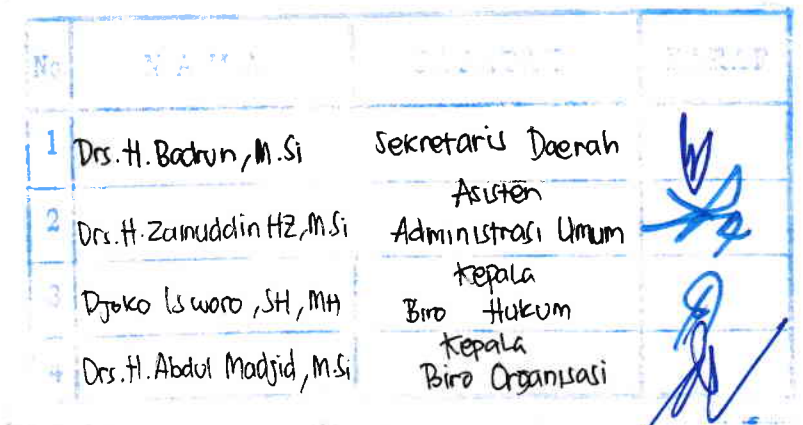 No NAMA PARAF
1 Drs. H. Badrun, M.Si Sekretaris Daerah
2 Drs. H. Zainuddin HZ, M.Si Asisten
Administrasi Umum
3 Djoko Isworo, SH, MH Kepala
Biro Hukum
4 Drs. H. Abdul Madjid, M.Si Kepala
Biro Organisasi